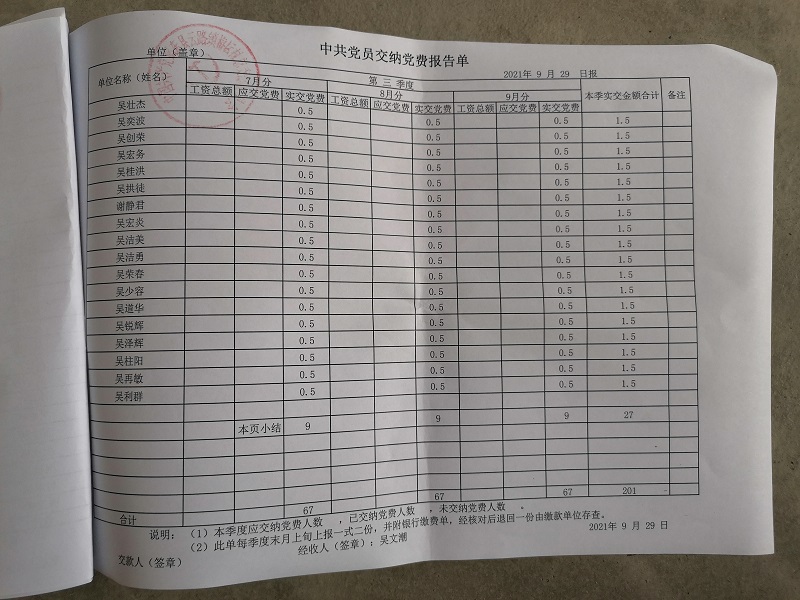 中共党员交纳党费报告单
单位（盖章） 2021年 9 月 29 日报
单位名称（姓名） 第 三 季度 本季实交金额合计 备注
7月分 8月分 9月分
工资总额 应交党费 实交党费 工资总额 应交党费 实交党费 工资总额 应交党费 实交党费
吴壮杰 0.5 0.5 0.5 1.5
吴奕波 0.5 0.5 0.5 1.5
吴创荣 0.5 0.5 0.5 1.5
吴宏务 0.5 0.5 0.5 1.5
吴桂洪 0.5 0.5 0.5 1.5
吴拱徒 0.5 0.5 0.5 1.5
谢静君 0.5 0.5 0.5 1.5
吴宏炎 0.5 0.5 0.5 1.5
吴洁美 0.5 0.5 0.5 1.5
吴洁勇 0.5 0.5 0.5 1.5
吴荣春 0.5 0.5 0.5 1.5
吴少容 0.5 0.5 0.5 1.5
吴道华 0.5 0.5 0.5 1.5
吴锐辉 0.5 0.5 0.5 1.5
吴泽辉 0.5 0.5 0.5 1.5
吴柱阳 0.5 0.5 0.5 1.5
吴再敏 0.5 0.5 0.5 1.5
吴利群 0.5 0.5 0.5 1.5
本页小结 9 9 9 27
合计 67 67 67 201
说明：（1）本季度应交纳党费人数 ，已交纳党费人数 ，未交纳党费人数 。
（2）此单每季度末月上旬上报一式二份，并附银行缴费单，经核对后退回一份由缴款单位存查。
交款人（签章） 经收人（签章）；吴文潮 2021年 9 月 29 日